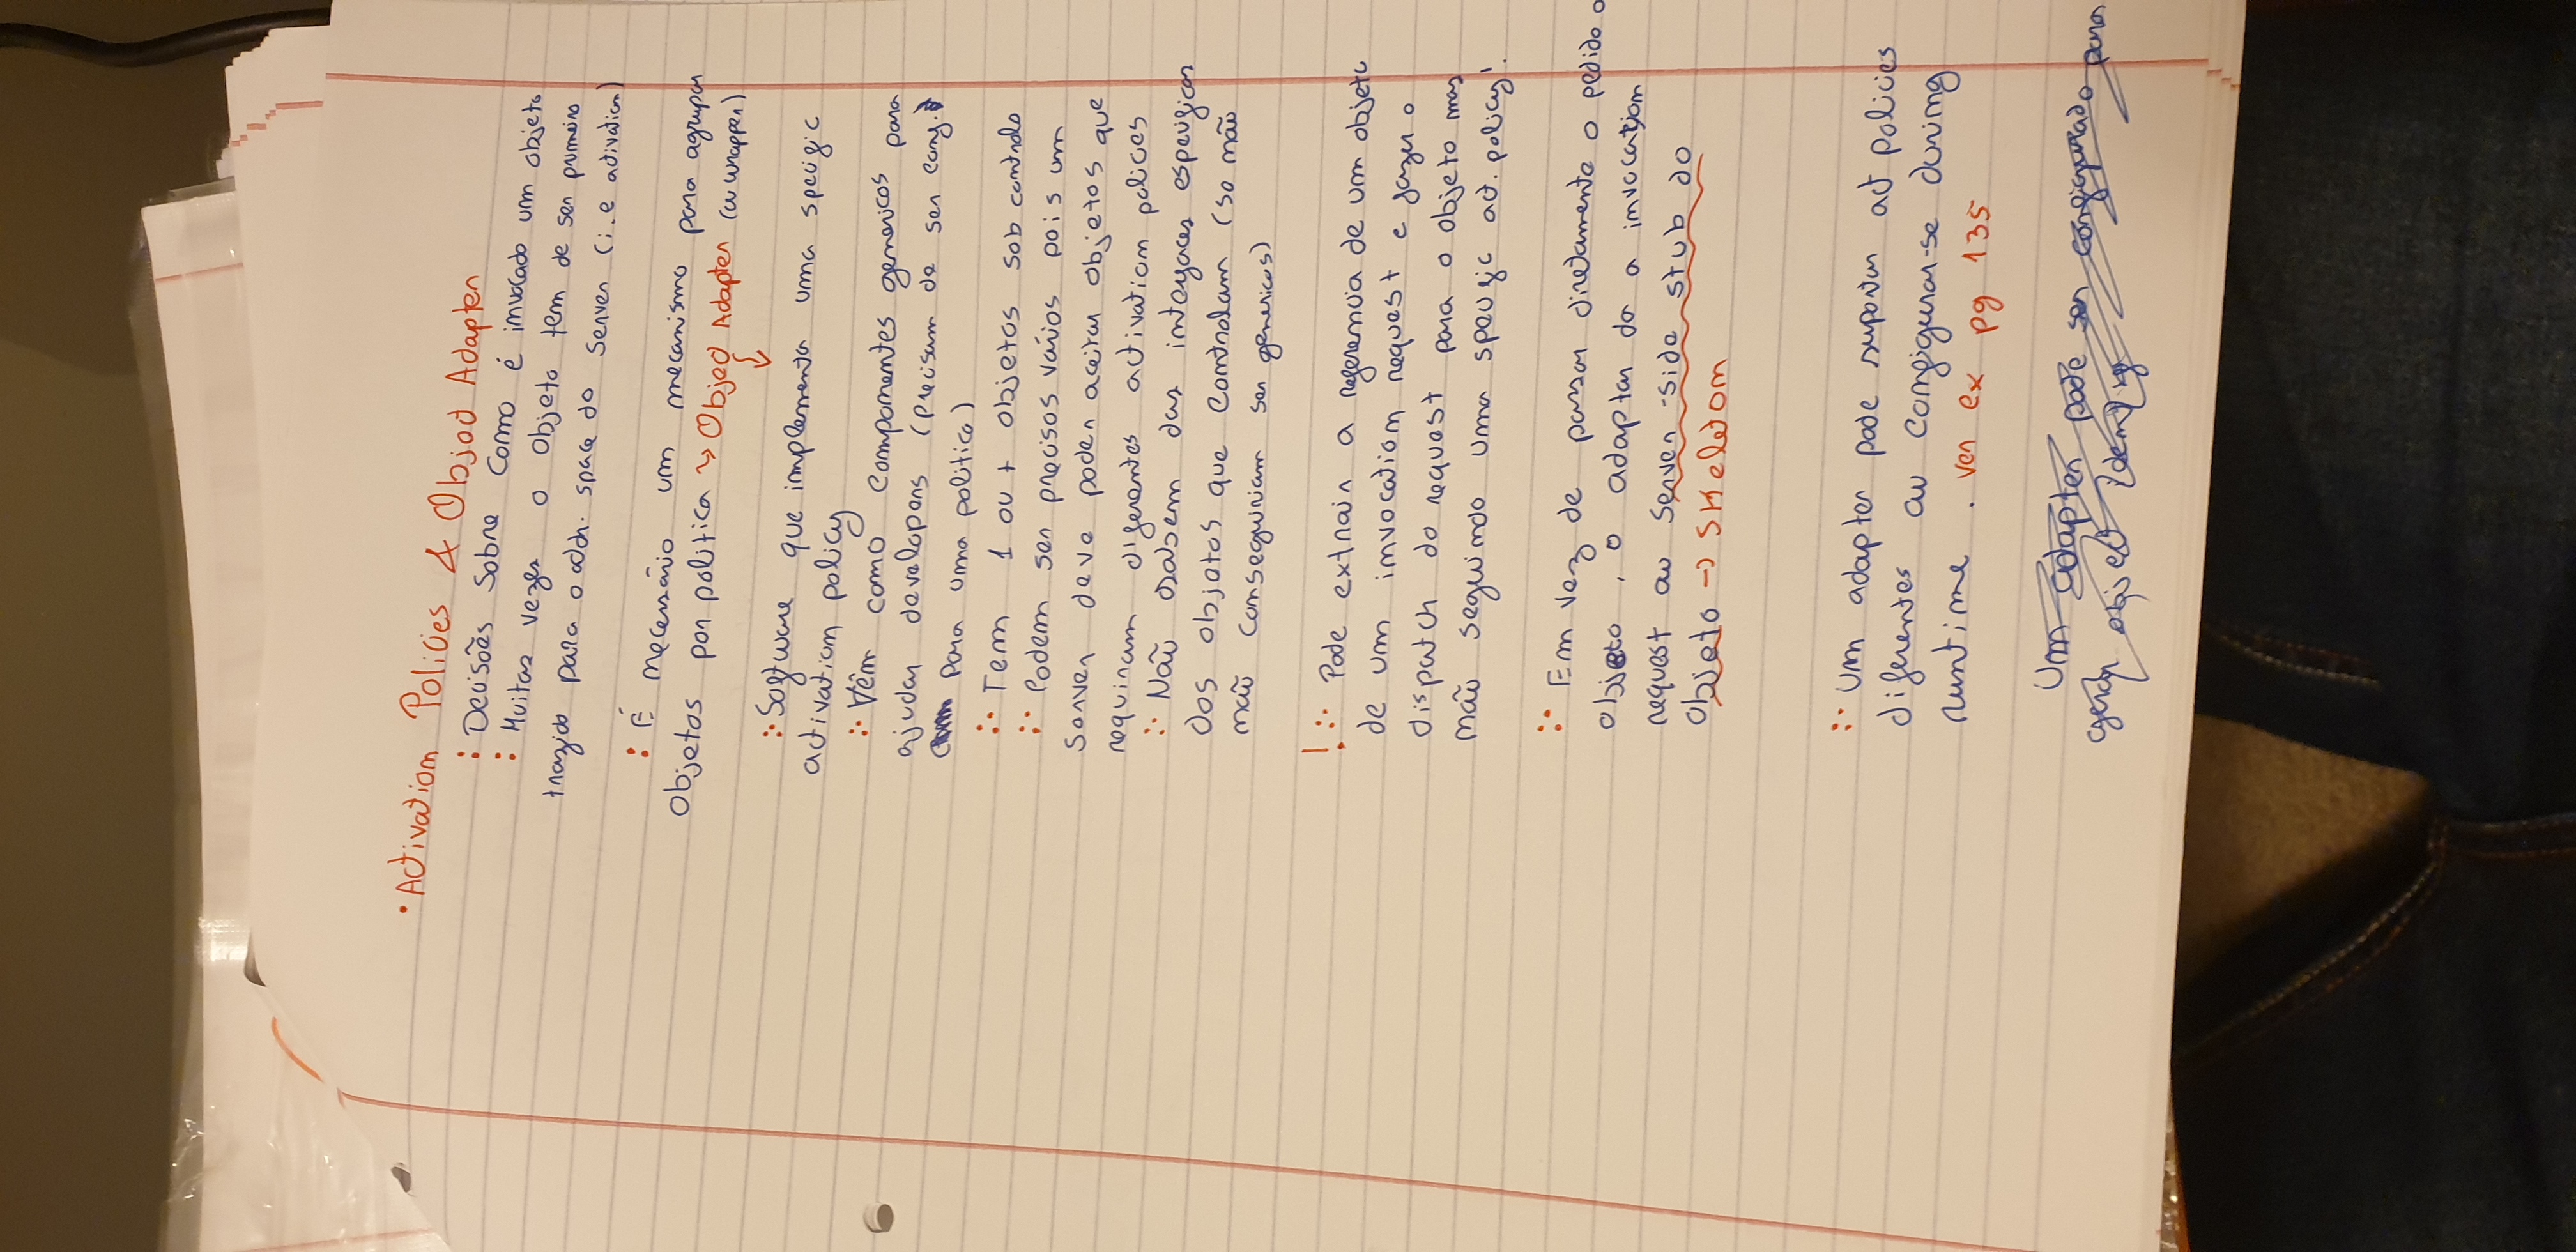 • Activation Policies & Object Adapter
: Decisões sobre como é invocado um objeto
: Muitas vezes o objeto tem de ser primeiro
trazido para o addr. space do server (i.e activation)
: É necessário um mecanismo para agrupar
objetos por politica ↝ Object Adapter (ou wrapper)
:· Software que implementa uma specific
activation policy
:· Vêm como componentes genericos para
ajudar developers (precisam de ser config.
para uma politica)
:· Tem 1 ou + objetos sob controlo
:· Podem ser precisos vários pois um
server deve poder aceitar objetos que
requiram diferentes activation polices
:· Não sabem das interfaces especificas
dos objetos que controlam (se não
não conseguiriam ser genericos)
! :· Pode extrair a referencia de um objeto
de um invocation request e fazer o
dispatch do request para o objeto mas
não seguindo uma specific act. policy!
:· Em vez de passar diretamente o pedido o
objeto, o adapter da a invocation
request ao server-side stub do
objeto → Skeleton
:· Um adapter pode suportar act policies
diferentes ou configurar-se during
runtime . ver ex pg 135
Um adapter pode ser configurado para
gerar object